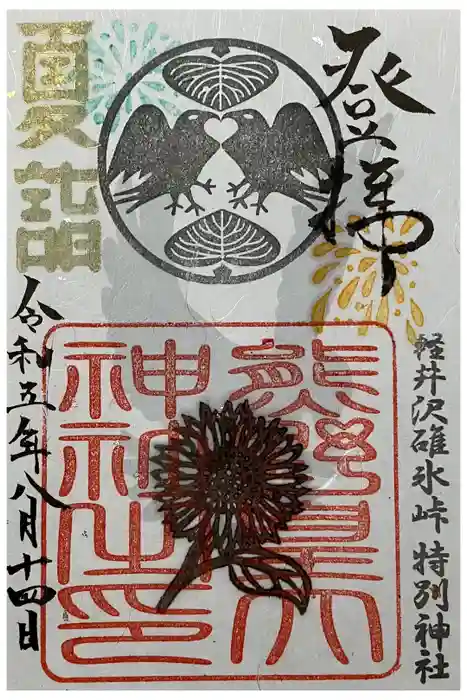 登拝
夏詣
軽井沢碓氷峠 特別神社
熊野皇大
神社之印
令和五年八月十四日